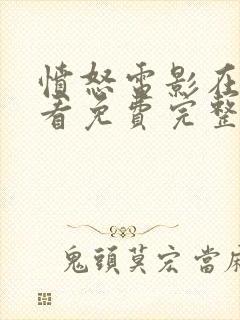 憤怒雷影在
看免費完整
鬼頭莫宏當麻